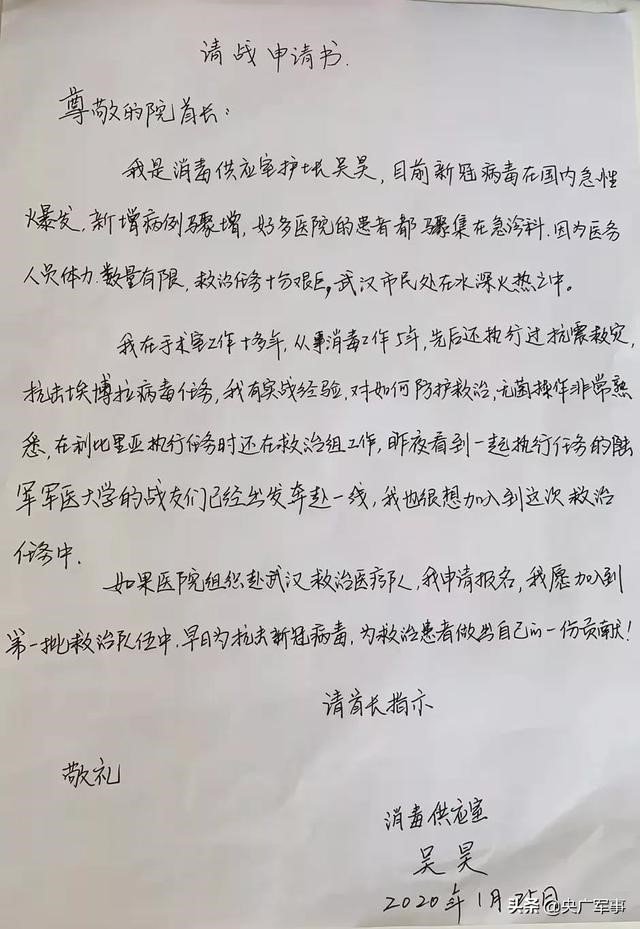 请战申请书.
尊敬的院首长:
我是消毒供应室护士长吴昊,目前新冠病毒在国内急性
爆发,新增病例骤增,好多医院的患者都骤集在急诊科.因为医务
人员体力.数量有限,救治任务十分艰巨,武汉市民处在水深火热之中。
我在手术室工作十多年,从事消毒工作5年,先后还执行过抗震救灾,
抗击埃博拉病毒任务,我有实战经验,对如何防护救治,无菌操作非常熟
悉,在利比里亚执行任务时还在救治组工作,昨夜看到一起执行任务的陆
军军医大学的战友们已经出发奔赴一线,我也很想加入到这次救治
任务中.
如果医院组织赴武汉救治医疗队,我申请报名,我愿加入到
第一批救治队伍中.早日为抗击新冠病毒,为救治患者做出自己的一份贡献!
请首长指示
敬礼
消毒供应室
吴昊
2020年1月25日
头条@央广军事